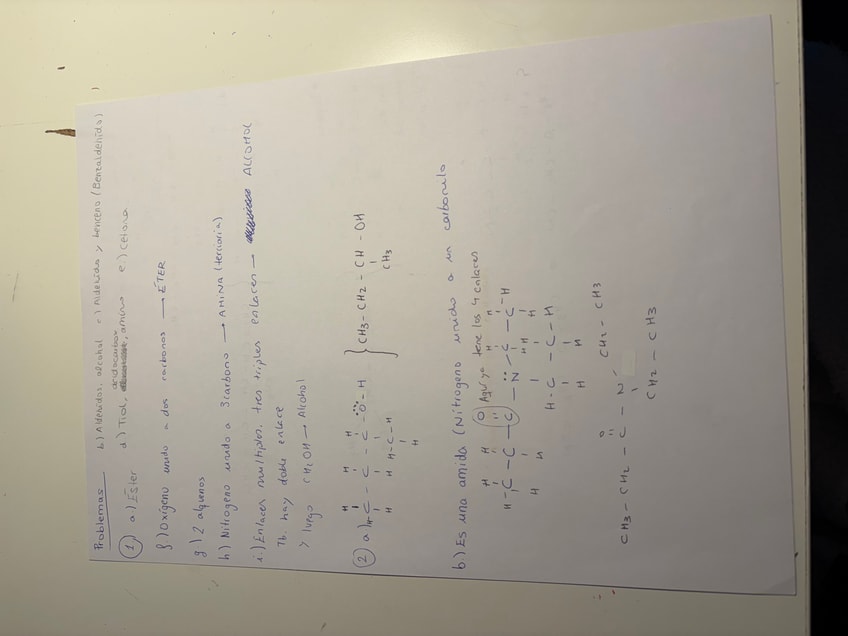 Problemas
① a) Éster b) Aldehidos, alcohol c) Aldehido y benceno (Benzaldehido)
d) Tiol, acidocarbox, amino e.) Cetona
f) Oxígeno unido a dos carbonos → ÉTER
g) 2 alquenos
h) Nitrógeno unido a 3 carbono → AMINA (terciaria)
i.) Enlaces multiples, tres triples enlaces → ALCOHOL
Tb. hay doble enlace
y luego CH2OH → Alcohol
② a)
H H H
H - C - C - C - O - H } CH3 - CH2 - CH - OH
H H H - C - H CH3
H
b.) Es una amida (Nitrógeno unido a un carbonilo
Aquí ya tiene los 4 enlaces
H H O H H
H - C - C - C - N - C - C - H
H H H H
H - C - C - H
H H
O CH2 - CH3
CH3 - CH2 - C - N
CH2 - CH3